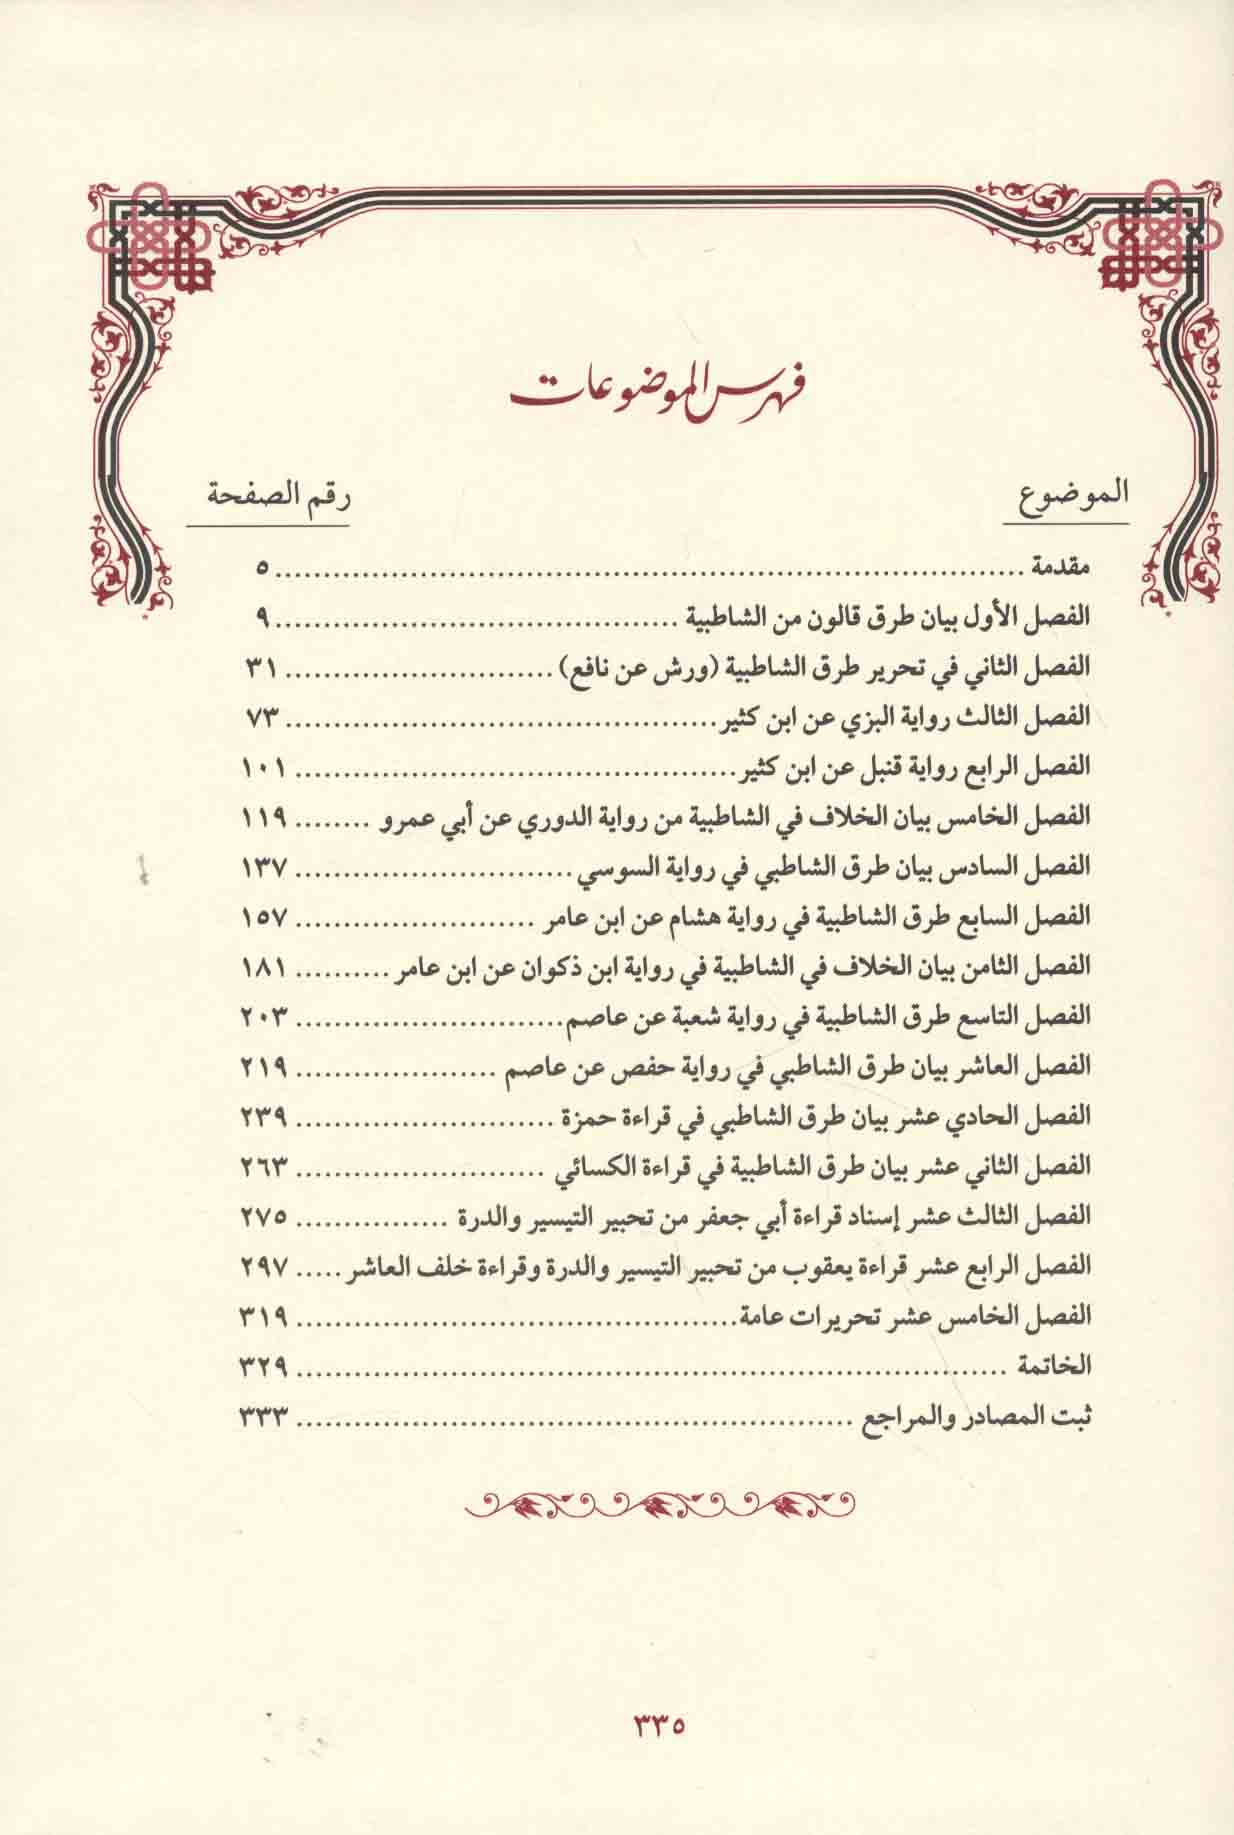 فهرس الموضوعات
الموضوع رقم الصفحة
مقدمة ........................................................................... ٥
الفصل الأول بيان طرق قالون من الشاطبية ......................................... ٩
الفصل الثاني في تحرير طرق الشاطبية (ورش عن نافع) ............................ ٣١
الفصل الثالث رواية البزي عن ابن كثير ............................................. ٧٣
الفصل الرابع رواية قنبل عن ابن كثير .............................................. ١٠١
الفصل الخامس بيان الخلاف في الشاطبية من رواية الدوري عن أبي عمرو ........ ١١٩
الفصل السادس بيان طرق الشاطبي في رواية السوسي ............................. ١٣٧
الفصل السابع طرق الشاطبية في رواية هشام عن ابن عامر ......................... ١٥٧
الفصل الثامن بيان الخلاف في الشاطبية في رواية ابن ذكوان عن ابن عامر .......... ١٨١
الفصل التاسع طرق الشاطبية في رواية شعبة عن عاصم ............................ ٢٠٣
الفصل العاشر بيان طرق الشاطبي في رواية حفص عن عاصم ..................... ٢١٩
الفصل الحادي عشر بيان طرق الشاطبي في قراءة حمزة ........................... ٢٣٩
الفصل الثاني عشر بيان طرق الشاطبية في قراءة الكسائي .......................... ٢٦٣
الفصل الثالث عشر إسناد قراءة أبي جعفر من تحبير التيسير والدرة ................ ٢٧٥
الفصل الرابع عشر قراءة يعقوب من تحبير التيسير والدرة وقراءة خلف العاشر ..... ٢٩٧
الفصل الخامس عشر تحريرات عامة .............................................. ٣١٩
الخاتمة .......................................................................... ٣٢٩
ثبت المصادر والمراجع .......................................................... ٣٣٣
٣٣٥